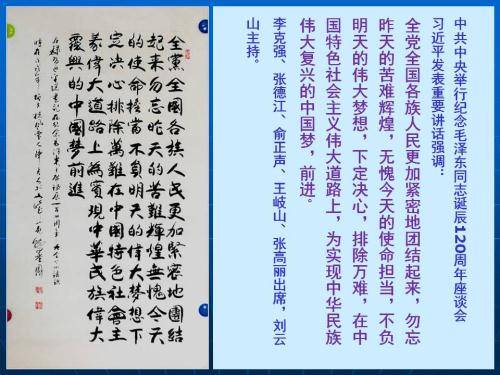 中共中央举行纪念毛泽东同志诞辰120周年座谈会
习近平发表重要讲话强调：
全党全国各族人民更加紧密地团结起来，勿忘
昨天的苦难辉煌，无愧今天的使命担当，不负
明天的伟大梦想，下定决心，排除万难，在中
国特色社会主义伟大道路上，为实现中华民族
伟大复兴的中国梦，前进。
李克强、张德江、俞正声、王岐山、张高丽出席，刘云
山主持。
全黨全國各族人民更加緊密地團結
起来勿忘昨天的苦難輝煌無愧今天
的使命担當不負明天的偉大夢想下
定决心排除萬難在中國特色社會主
義偉大道路上為實現中華民族偉大
復興的中國夢前進